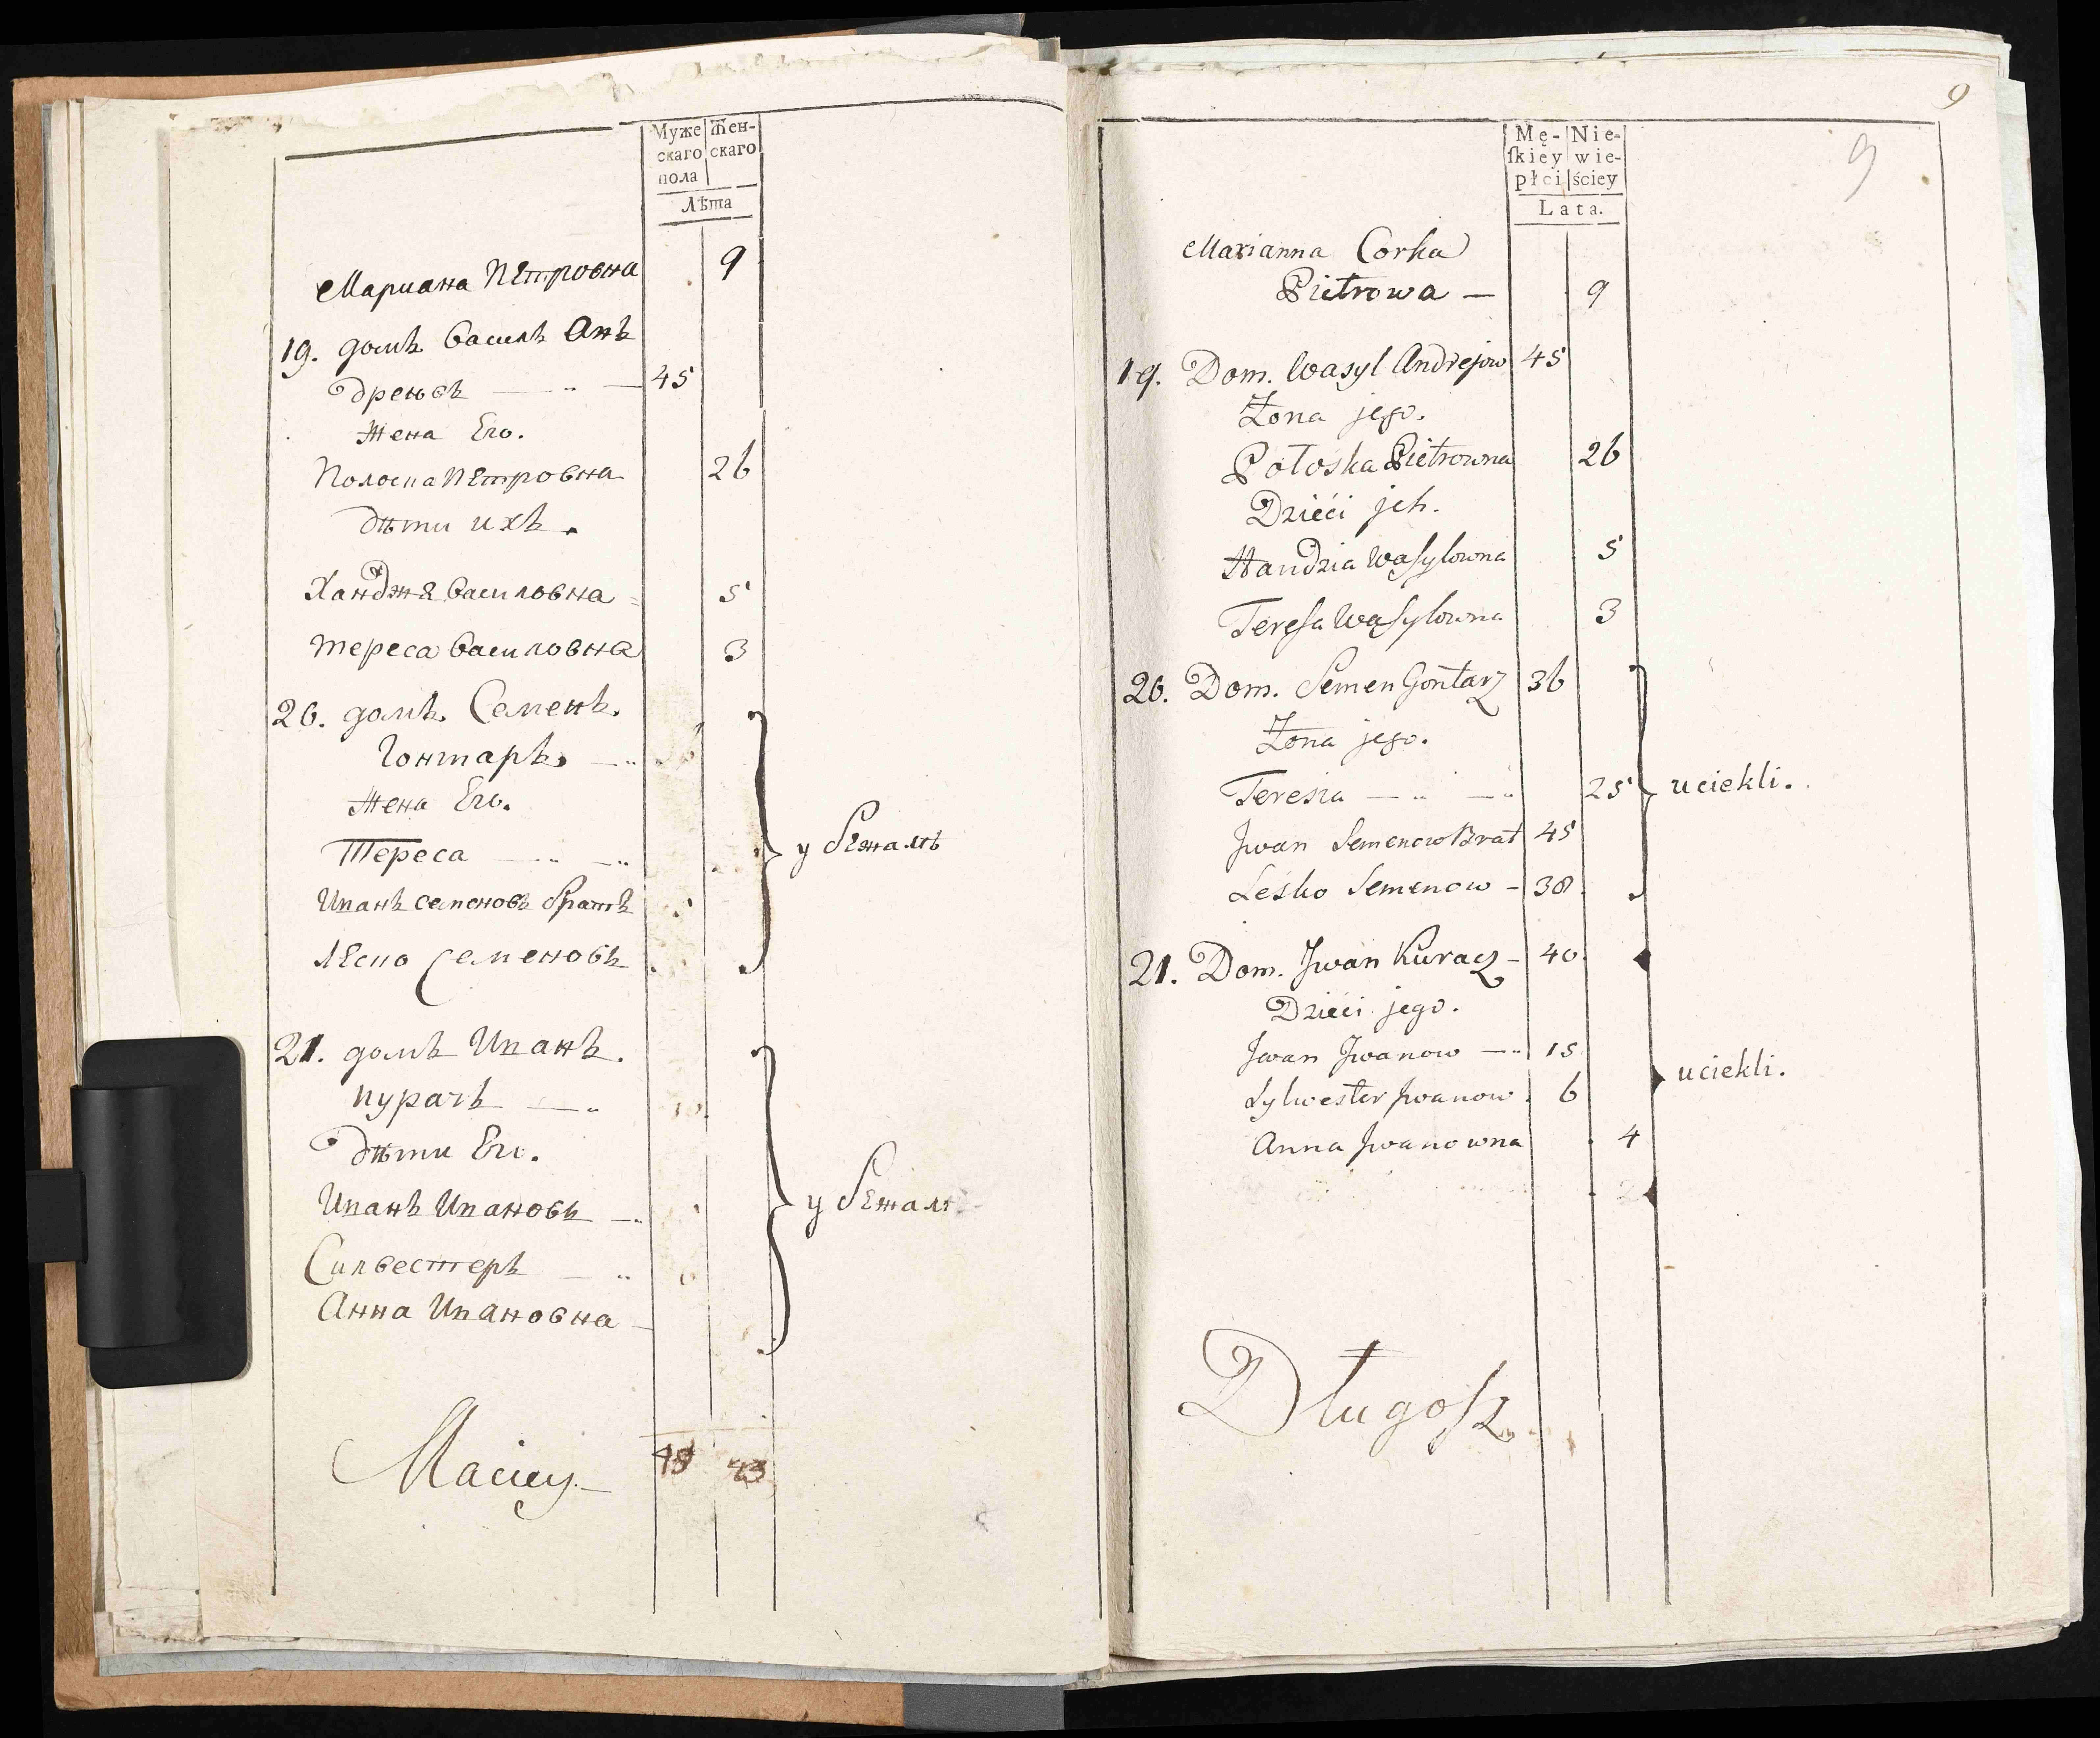 Муже
скаго
пола
Жен-
скаго
Лѣта
Мариана Петровна 9
19. домъ Василъ Ан
дреювъ 45
Жена Его.
Полоска Петровна 26
дѣти ихъ.
Ханджя Василовна 5
Тереса Василовна 3
20. домъ Семенъ
Гонтаръ
Жена Его.
Тереса
Иванъ Семеновъ братъ
Леско Семеновъ
убежалѣ
21. домъ Иванъ.
Курачъ
дѣти Его.
Иванъ Ивановъ
Силвестеръ 6
Анна Ивановна
убежал
Maciey
48 43
9
9
Mę-
skiey
płci
Nie-
wie-
ściey
Lata.
Marianna Corka
Pietrowa — 9
19. Dom. Wasyl Andrejow 45
Żona jego.
Połoska Pietrowna 26
Dzieći jch.
Handzia Wasylowna 5
Teresa Wasylowna 3
20. Dom. Semen Gontarz 36
Żona jego.
Teresia 25
Jwan Semenow Brat 45
Leśko Semenow - 38
uciekli.
21. Dom. Jwan Kuracz - 40
Dzieci jego.
Jwan Jwanow 15
Sylwester Jwanow 6
Anna Jwanowna 4
uciekli.
Długosz